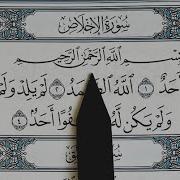 سُورَةُ الإِخْلَاصِ
اللَّهِ الرَّحْمَٰنِ الرَّحِيمِ
أَحَدٌ ١ اللَّهُ ٢ لَمْ يَلِدْ وَلَمْ
وَلَمْ يَكُن لَّهُ أَحَدٌ ٤
سُورَةُ